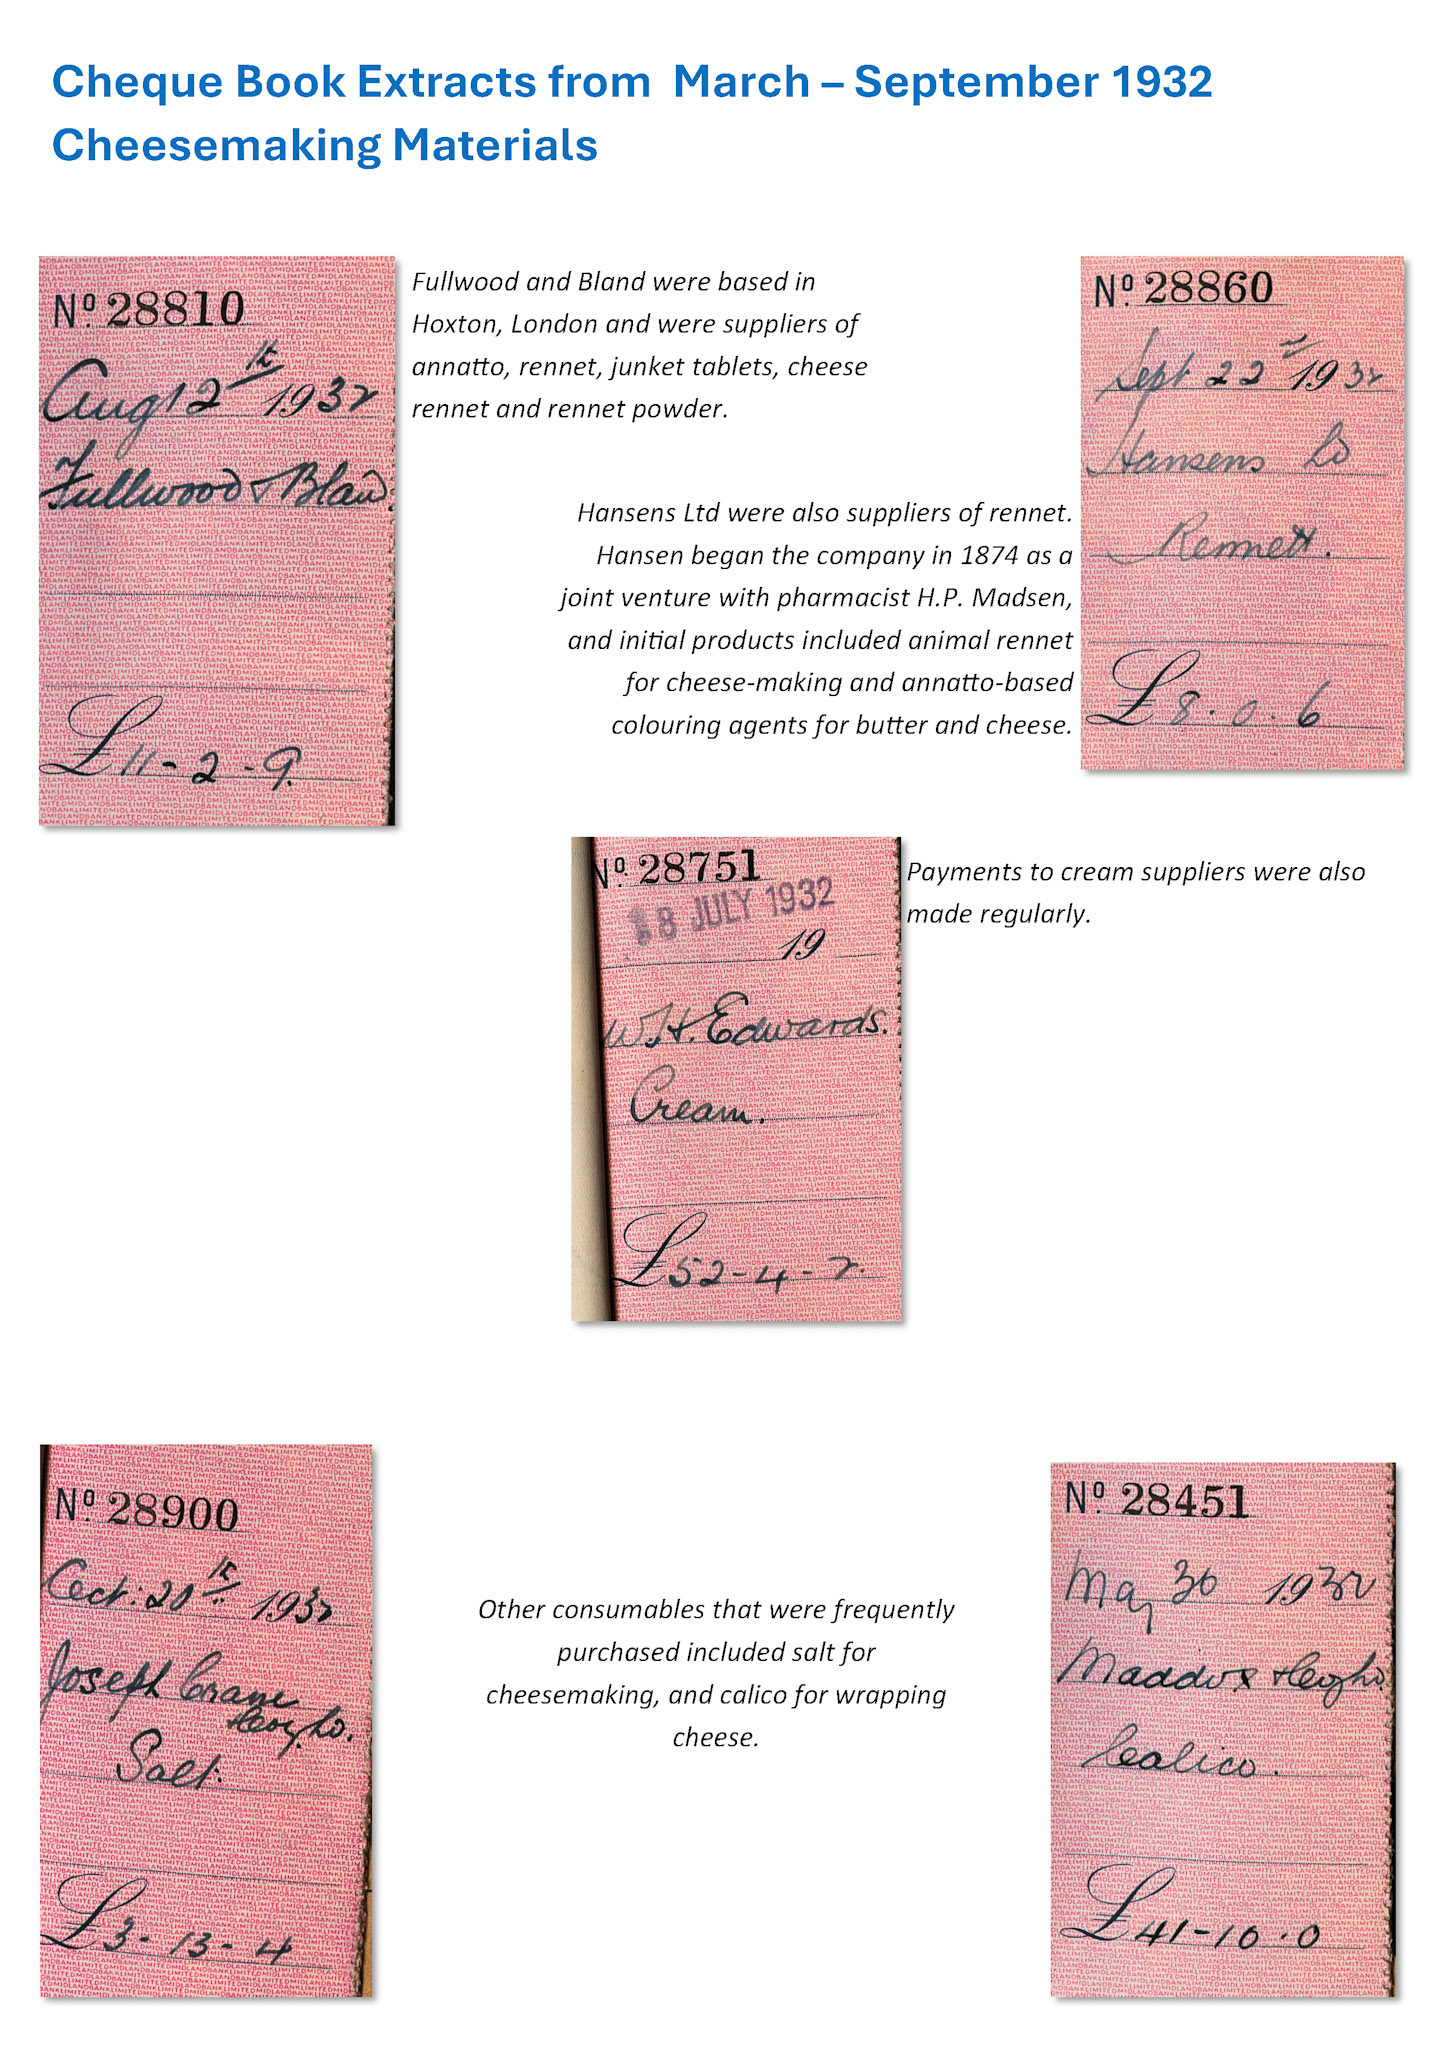 Cheque Book Extracts from March – September 1932
Cheesemaking Materials
Nº 28810
Aug 12th 1932
Fullwood & Blan
£11-2-9
Fullwood and Bland were based in
Hoxton, London and were suppliers of
annatto, rennet, junket tablets, cheese
rennet and rennet powder.
Nº 28860
Sept 22 1932
Hansens Ld
Rennett.
£8.0.6
Hansens Ltd were also suppliers of rennet.
Hansen began the company in 1874 as a
joint venture with pharmacist H.P. Madsen,
and initial products included animal rennet
for cheese-making and annatto-based
colouring agents for butter and cheese.
Nº 28751
8 JULY 1932
19
W.H. Edwards.
Cream.
£52-4-7.
Payments to cream suppliers were also
made regularly.
Nº 28900
Oct: 20th 1932
Joseph Crane
Salt.
£3-13-4
Other consumables that were frequently
purchased included salt for
cheesemaking, and calico for wrapping
cheese.
Nº 28451
May 30 1932
Maddox
Calico.
£41-10.0